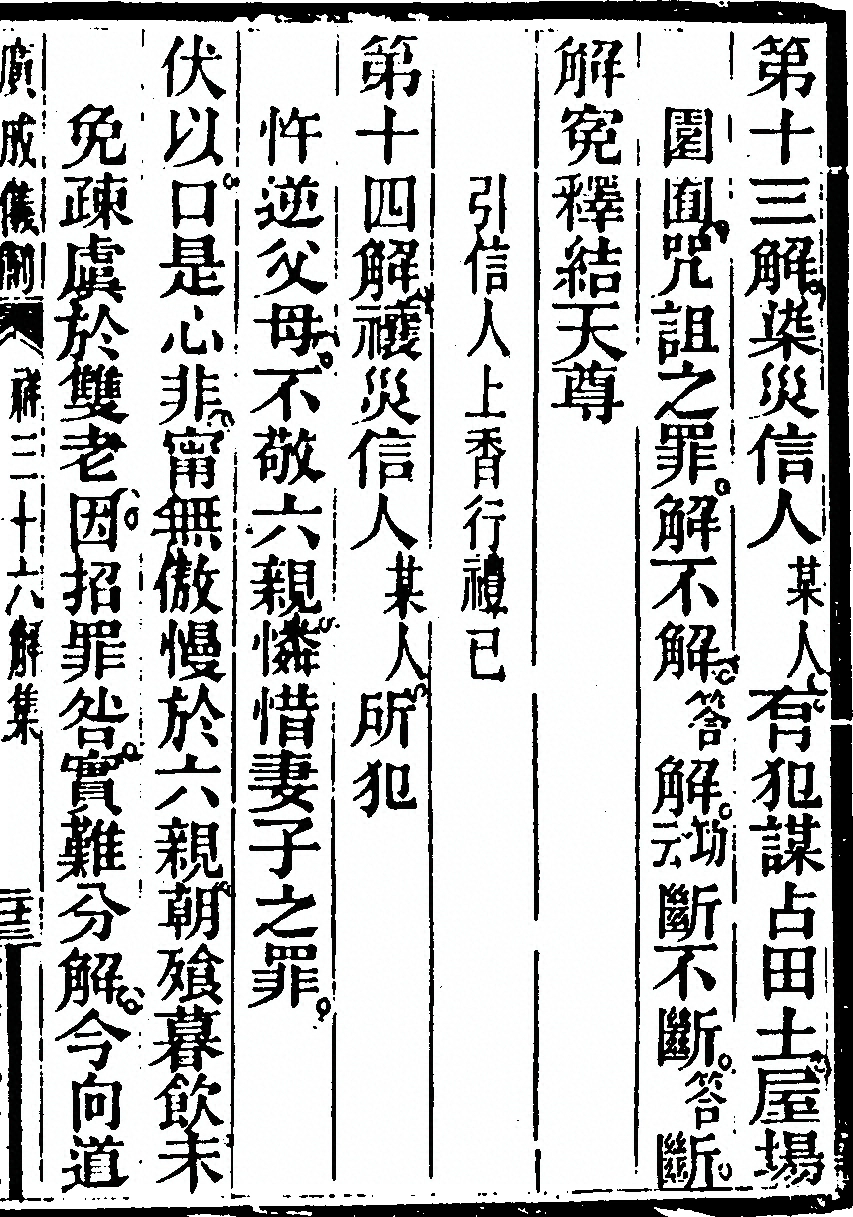 第十三解柒災信人某人有犯謀占田土屋場
園囿咒詛之罪解不解答解功云斷不斷答斷
解寃釋結天尊
引信人上香行禮已
第十四解禳災信人某人所犯
忤逆父母不敬六親憐惜妻子之罪
伏以口是心非甯無傲慢於六親朝飱暮飲未
免疎虞於雙老因招罪咎實難分解今向道
廣成儀制 禳三十六解集
三十三